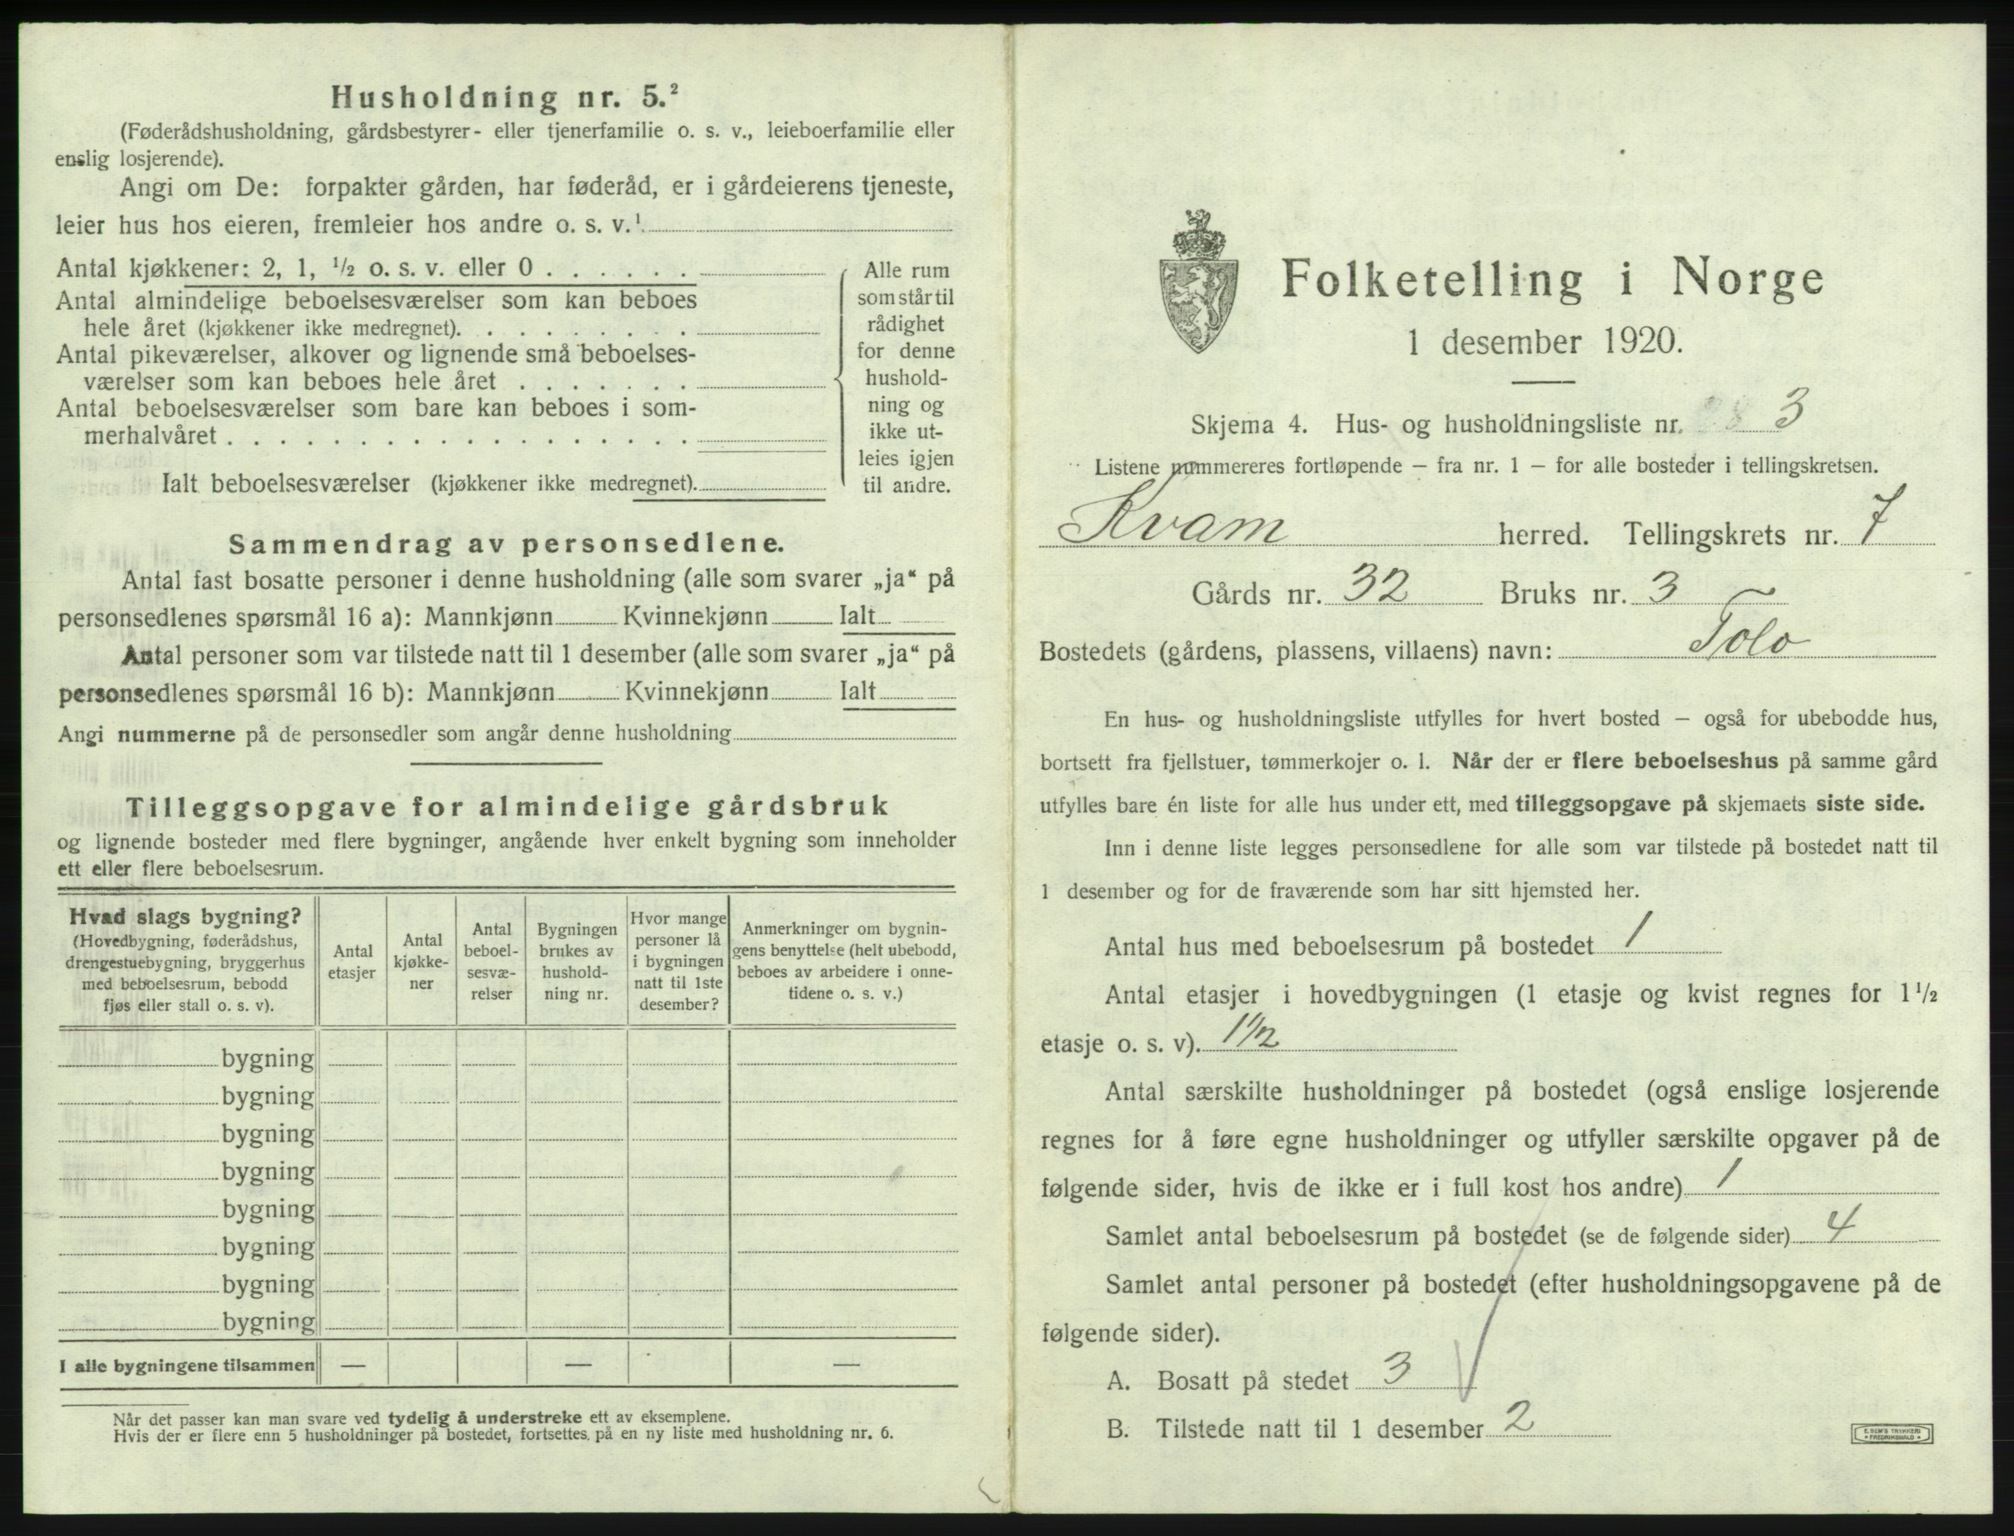 Husholdning nr. 5.²
(Føderådshusholdning, gårdsbestyrer- eller tjenerfamilie o. s. v., leieboerfamilie eller
enslig losjerende).
Angi om De: forpakter gården, har føderåd, er i gårdeierens tjeneste,
leier hus hos eieren, fremleier hos andre o. s. v.¹
Antal kjøkkener: 2, 1, ½ o. s. v. eller 0 . . . . . .
Antal almindelige beboelsesværelser som kan beboes
hele året (kjøkkener ikke medregnet). . . . . . . . .
Antal pikeværelser, alkover og lignende små beboelses-
værelser som kan beboes hele året . . . . . . .
Antal beboelsesværelser som bare kan beboes i som-
merhalvåret . . . . . . . . . . . . . . . . . .
Ialt beboelsesværelser (kjøkkener ikke medregnet).
Alle rum
som står til
rådighet
for denne
hushold-
ning og
ikke ut-
leies igjen
til andre.
Sammendrag av personsedlene.
Antal fast bosatte personer i denne husholdning (alle som svarer „ja“ på
personsedlenes spørsmål 16 a): Mannkjønn Kvinnekjønn Ialt
Antal personer som var tilstede natt til 1 desember (alle som svarer „ja“ på
personsedlenes spørsmål 16 b): Mannkjønn Kvinnekjønn Ialt
Angi nummerne på de personsedler som angår denne husholdning
Tilleggsopgave for almindelige gårdsbruk
og lignende bosteder med flere bygninger, angående hver enkelt bygning som inneholder
ett eller flere beboelsesrum.
Hvad slags bygning?
(Hovedbygning, føderådshus,
drengestuebygning, bryggerhus
med beboelsesrum, bebodd
fjøs eller stall o. s. v).
Antal
etasjer
Antal
kjøkke-
ner
Antal
beboel-
sesvæ-
relser
Bygningen
brukes av
hushold-
ning nr.
Hvor mange
personer lå
i bygningen
natt til 1ste
desember?
Anmerkninger om bygnin-
gens benyttelse (helt ubebodd,
beboes av arbeidere i onne-
tidene o. s. v.)
bygning
bygning
bygning
bygning
bygning
bygning
bygning
bygning
I alle bygningene tilsammen — — —
Når det passer kan man svare ved tydelig å understreke ett av eksemplene.
Hvis der er flere enn 5 husholdninger på bostedet, fortsettes på en ny liste med husholdning nr. 6.
Folketelling i Norge
1 desember 1920.
Skjema 4. Hus- og husholdningsliste nr. 3
Listene nummereres fortløpende – fra nr. 1 – for alle bosteder i tellingskretsen.
Kvam herred. Tellingskrets nr. 7
Gårds nr. 32 Bruks nr. 3
Bostedets (gårdens, plassens, villaens) navn: Tolo
En hus- og husholdningsliste utfylles for hvert bosted – også for ubebodde hus,
bortsett fra fjellstuer, tømmerkojer o. l. Når der er flere beboelseshus på samme gård
utfylles bare én liste for alle hus under ett, med tilleggsopgave på skjemaets siste side.
Inn i denne liste legges personsedlene for alle som var tilstede på bostedet natt til
1 desember og for de fraværende som har sitt hjemsted her.
Antal hus med beboelsesrum på bostedet 1
Antal etasjer i hovedbygningen (1 etasje og kvist regnes for 1½
etasje o. s. v). 1½
Antal særskilte husholdninger på bostedet (også enslige losjerende
regnes for å føre egne husholdninger og utfyller særskilte opgaver på de
følgende sider, hvis de ikke er i full kost hos andre) 1
Samlet antal beboelsesrum på bostedet (se de følgende sider) 4
Samlet antal personer på bostedet (efter husholdningsopgavene på de
følgende sider).
A. Bosatt på stedet 3
B. Tilstede natt til 1 desember 2